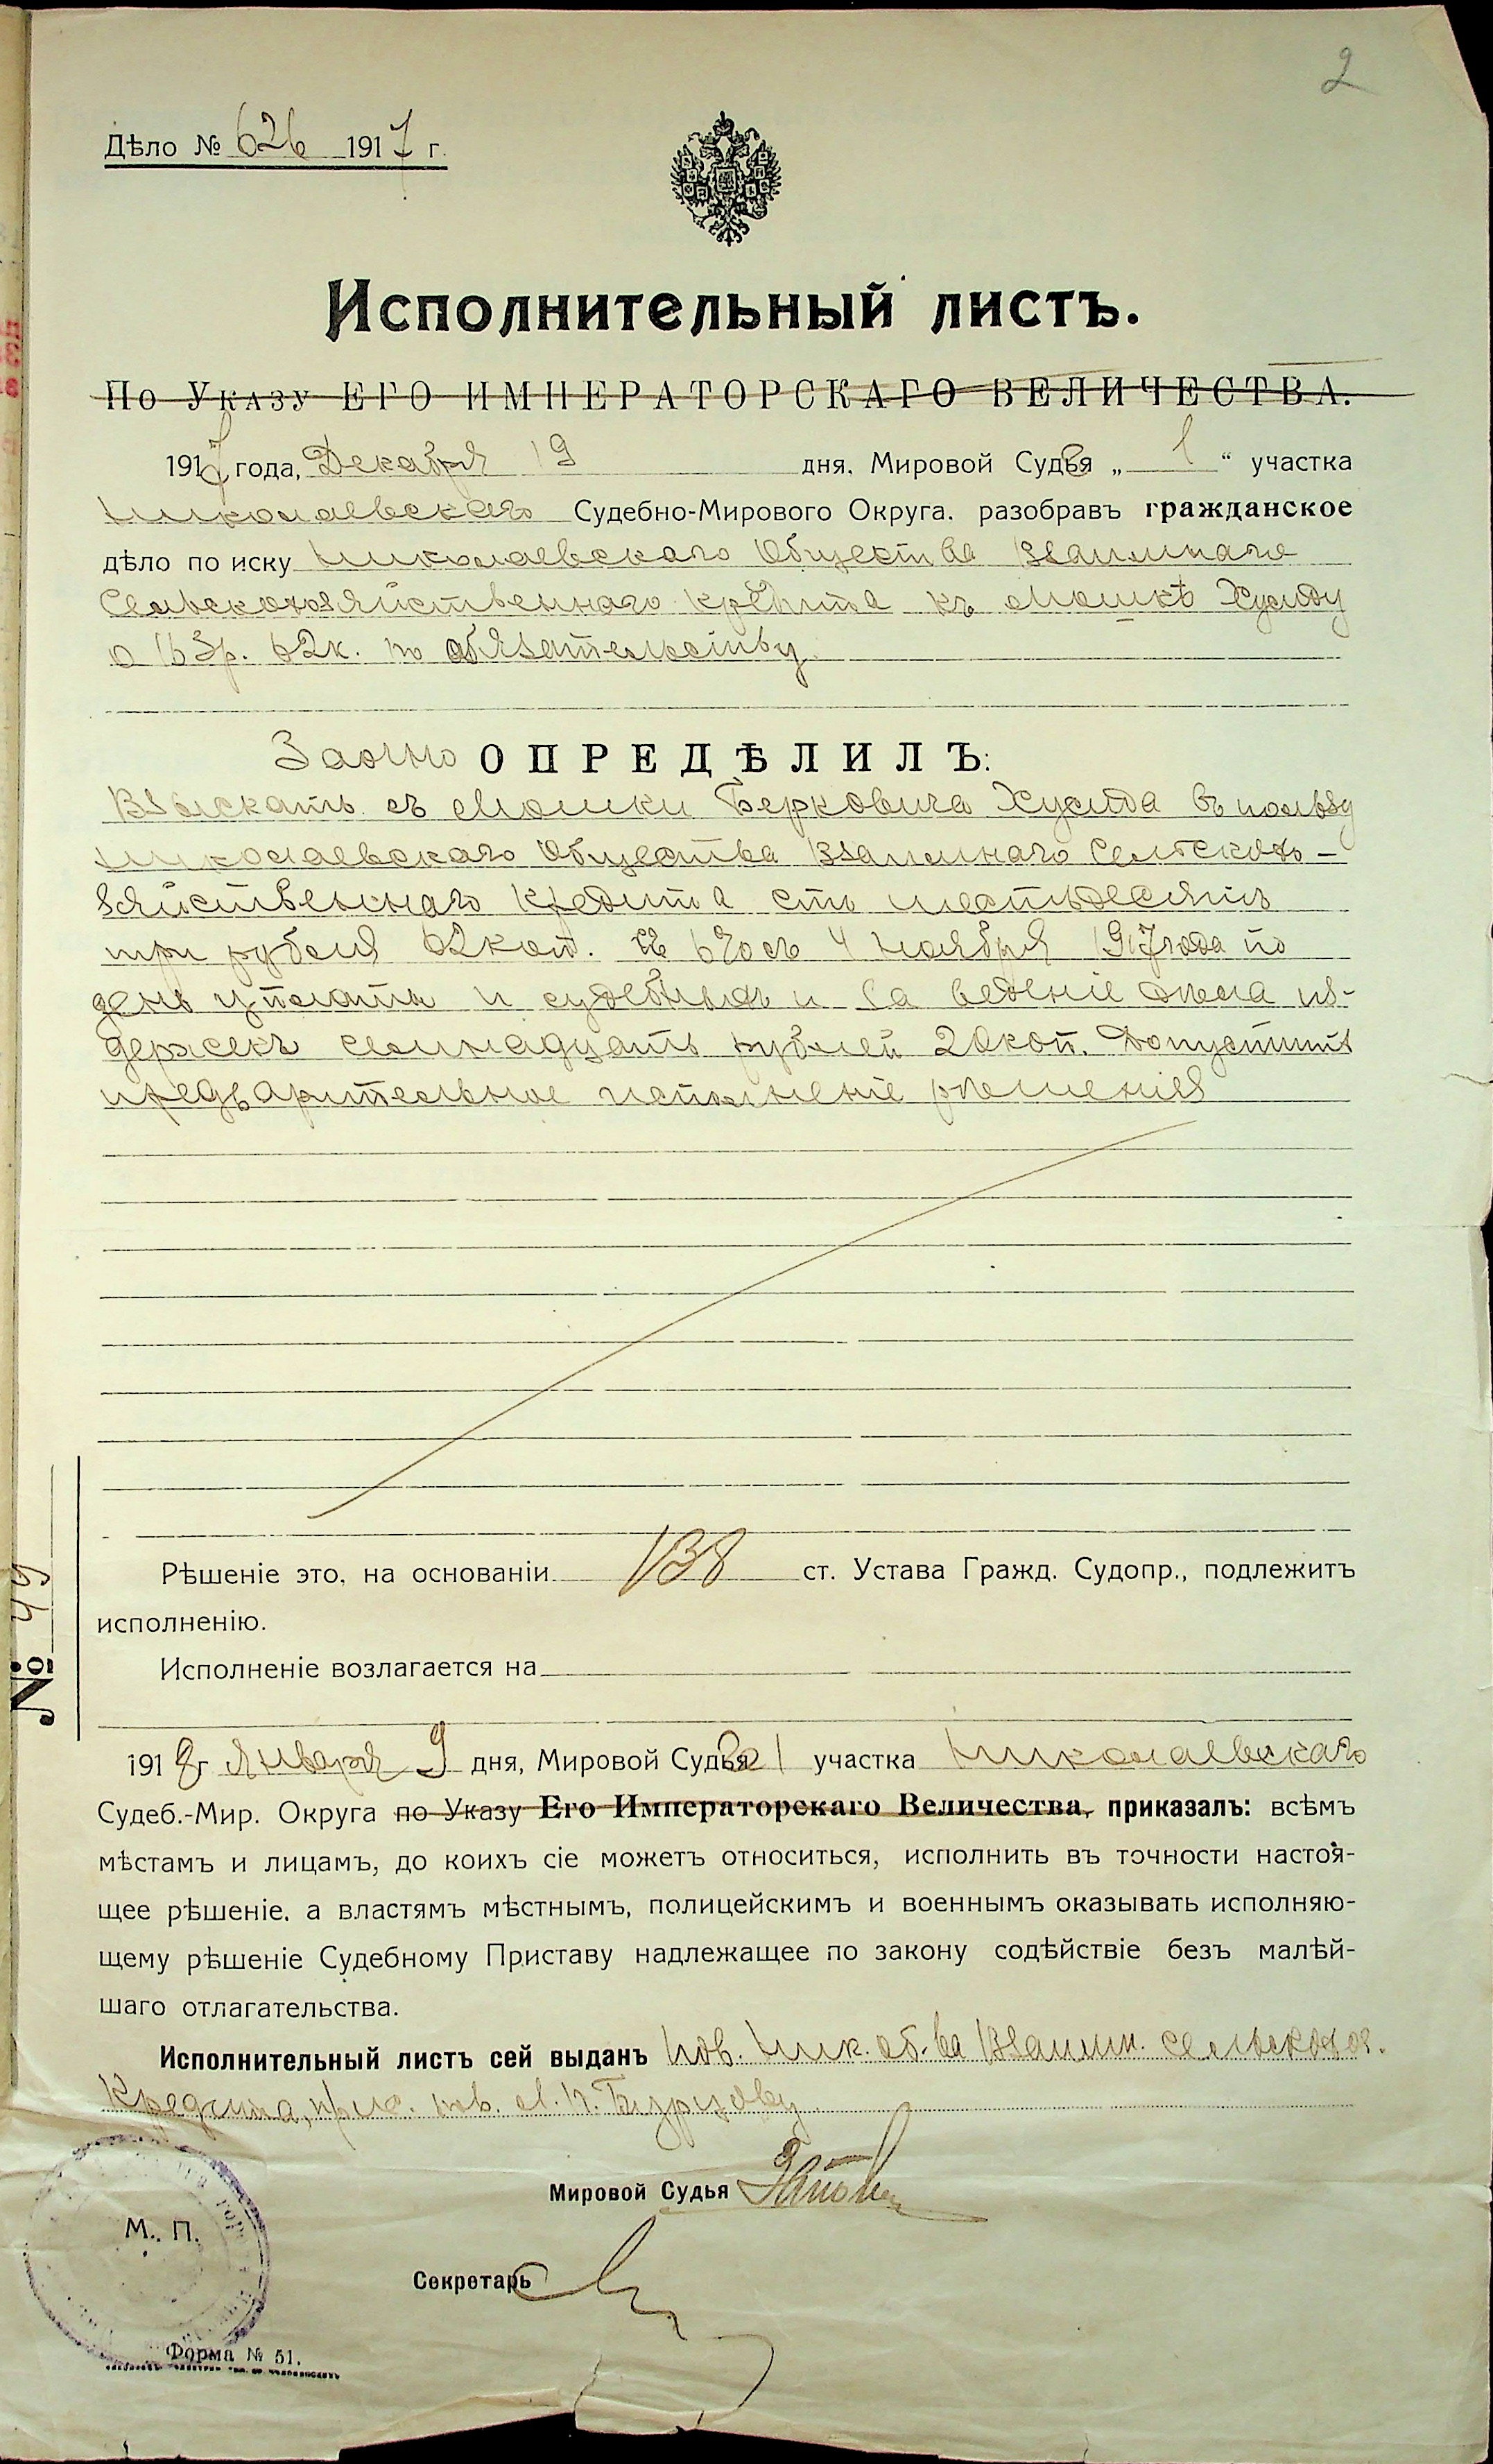 2
Дѣло № 626 1917 г.
Исполнительный листъ.
По Указу ЕГО ИМПЕРАТОРСКАГО ВЕЛИЧЕСТВА.
1917 года, Декабря 19 дня. Мировой Судья „ 1 “ участка
Николаевскаго Судебно-Мирового Округа. разобравъ гражданское
дѣло по иску Николаевскаго Общества Взаимнаго
Сельскохозяйственнаго кредита къ Мошкѣ Хусиду
о 163р. 62к. по обязательству
Заочно ОПРЕДѢЛИЛЪ:
Взыскать съ Мошки Берковича Хусида въ пользу
Николаевскаго Общества Взаимнаго Сельскохо-
зяйственнаго Кредита сто шестьдесятъ
три рубля 62коп. съ 6% съ 4 ноября 1917года по
день уплаты и судебныхъ и за веденіе дѣла из-
держекъ семнадцать рублей 20коп. Допустить
предварительное исполненіе рѣшенія
Рѣшеніе это, на основаніи 138 ст. Устава Гражд. Судопр., подлежитъ
исполненію.
Исполненіе возлагается на
№ 49
1918 г Января 9 дня, Мировой Судья 1 участка Николаевскаго
Судеб.-Мир. Округа по Указу Его Императорскаго Величества, приказалъ: всѣмъ
мѣстамъ и лицамъ, до коихъ сіе можетъ относиться, исполнить въ точности настоя-
щее рѣшеніе, а властямъ мѣстнымъ, полицейскимъ и военнымъ оказывать исполняю-
щему рѣшеніе Судебному Приставу надлежащее по закону содѣйствіе безъ малѣй-
шаго отлагательства.
Исполнительный листъ сей выданъ пов. Ник. об-ва Взаимн. сельскохоз.
Кредита, прис. пов. М. П.
Мировой Судья
М. П.
Секретарь
Форма № 51.